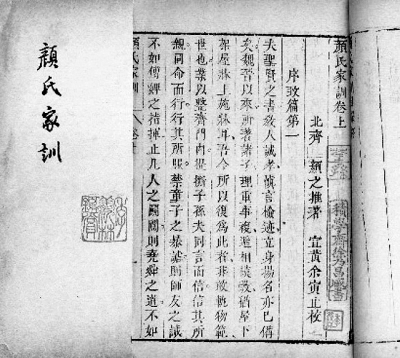 顏氏家訓卷上
北齊 顏之推著 宜黃余寅止校
序致篇第一
夫聖賢之書敎人誠孝慎言檢迹立身揚名亦已備
矣魏晉以來所著諸子理重事複遞相模斆猶屋下
架屋牀上施牀耳吾今所以復爲此者非敢軌物範
世也業以整齊門內提撕子孫夫同言而信信其所
親同命而行行其所服禁童子之暴謔則師友之誡
不如傅婢之指揮止凡人之鬬鬩則堯舜之道不如
顏氏家訓 卷上
積學齋徐乃昌藏書
顏氏家訓